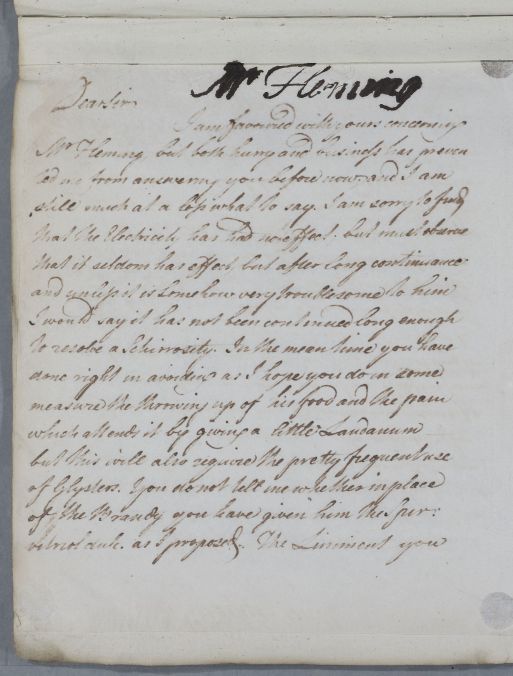 Mr Fleming
Dear Sir
I am favoured with yours concerning
Mr Fleming, but both hurry and business has preven
ted me from answering you before now and I am
still much at a loss what to say. I am sorry to find
that the Electricity has had no effect. but must observe
that it seldom has effect, but after long continuance
and unless it is somehow very troublesome to him
I would say it has not been continued long enough
to resolve a Schirrosity. In the mean time you have
done right in avoiding as I hope you do in some
measure the throwing up of his food and the pain
which attends it by giving a little Laudanum
but this will also require the pretty frequent use
of Glysters. You do not tell me whether in place
of the Brandy you have given him the
as I proposed. The Liniment you